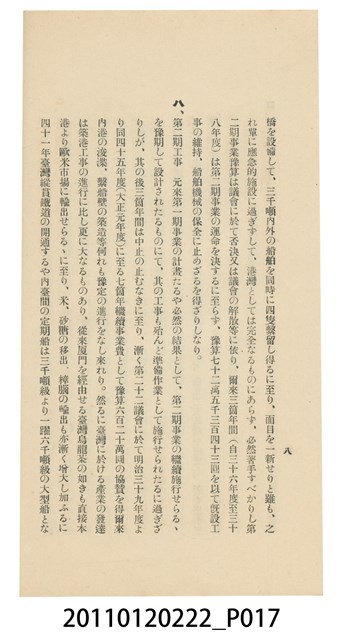 橋を設備して、三千噸内外の船舶を同時に四隻繫留し得るに至り、面目を一新せりと雖も、之
れ單に應急的施設に過ぎずして、港灣としては完全なるものにあらず、必然著手すべかりし第
二期事業豫算は議會に於て否決又は議會の解散等に依り、爾來三箇年間（自三十六年度至三十
八年度）は第二期事業の運命を決するに至らず、豫算七十二萬五千三百四十三圓を以て旣設工
事の維持、船舶機械の保全に止めざるを得ざりしなり。
八、第二期工事 元來第一期事業の計畫たるや必然の結果として、第二期事業の繼續施行せらる、
を豫期して設計されたるものにて、其の工事も殆んど準備作業として施行せられたるに過ぎざ
りしが、其の後三箇年間は中止の止むなきに至り、漸く第二十二議會に於て明治三十九年度よ
り同四十五年度（大正元年度）に至る七箇年繼續事業費として豫算六百二十萬圓の協贊を得爾來
內港の浚渫、繫船壁の築造等何れも豫定の進行をなし來れり。然るに臺灣に於ける產業の發達
は築港工事の進行に比し更に大なるものあり、從來厦門を經由せる臺灣烏龍茶の如きも直接本
港より歐米市場に輸出せらる、に至り、米、砂糖の移出、樟腦の輸出も亦漸く增大し加ふるに
四十一年臺灣縱貫鐵道の開通するや內臺間の定期船は三千噸級より一躍六千噸級の大型船とな
八
20110120222_P017